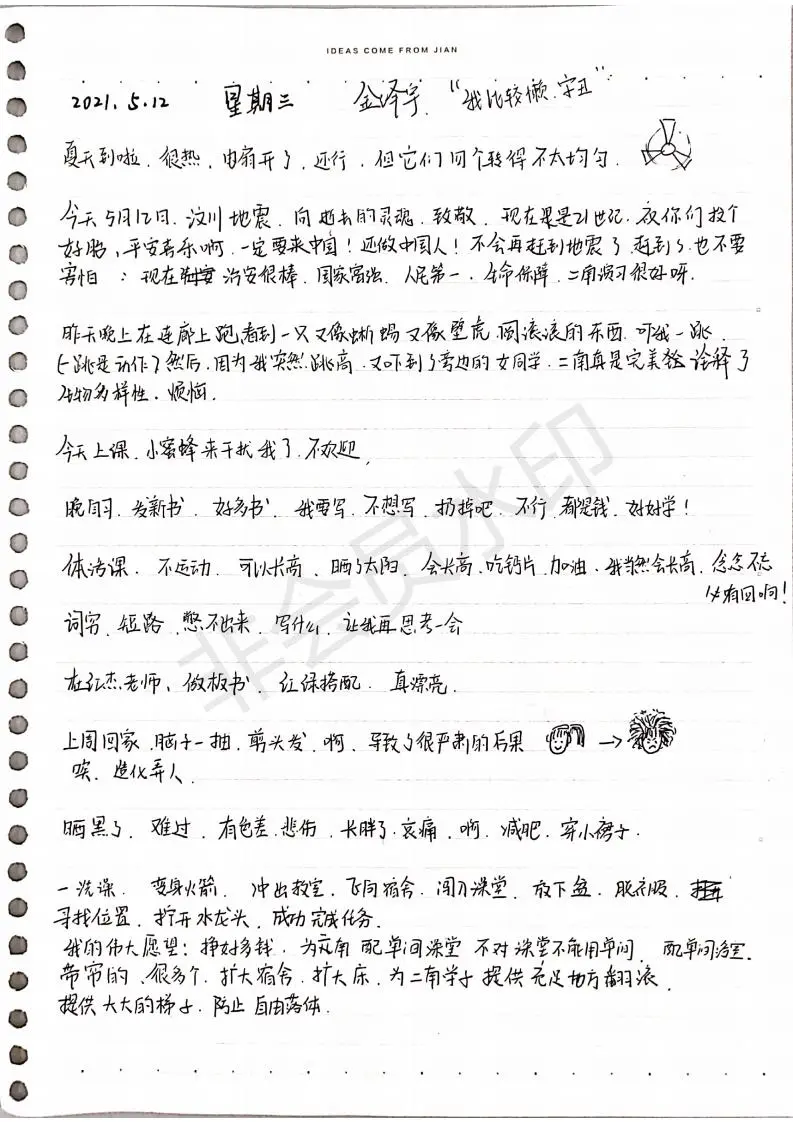 IDEAS COME FROM JIAN
2021.5.12 星期三 金泽宇. “我比较懒.字丑”
夏天到啦.很热.电扇开了.还行.但它们四个转得不太均匀.
今天5月12日.汶川地震.向逝去的灵魂.致敬.现在是21世纪.祝你们投个
好胎,平安喜乐啊.一定要来中国!还做中国人!不会再赶到地震了.赶到了也不要
害怕:现在治安很棒.国家富强.人民第一.生命保障.二南演习很好呀.
昨天晚上在连廊上跑看到一只又像蜥蜴又像壁虎圆滚滚的东西.吓我一跳.
(跳是动作)然后.因为我突然跳高.又吓到了旁边的女同学.二南真是完美诠释了
生物多样性.烦恼.
今天上课.小蜜蜂来干扰我了.不欢迎,
晚自习.发新书.好多书.我要写.不想写.扔掉吧.不行.都是钱.好好学!
体活课.不运动.可以长高.晒了太阳.会长高.吃钙片.加油.我当然会长高.念念不忘
必有回响!
词穷.短路.憋不出来.写什么.让我再思考一会
在红杰老师、做板书.红绿搭配.真漂亮.
上周回家.脑子一抽.剪头发.啊.导致了很严肃的后果 →
唉.造化弄人.
晒黑了.难过.有色差.悲伤.长胖了.哀痛.啊.减肥.穿小裙子.
一洗澡.变身火箭.冲出教室.飞向宿舍.闯入澡堂.放下盆.脱衣服.
寻找位置.拧开水龙头.成功完成任务.
我的伟大愿望:挣好多钱.为二南配单间澡堂 不对 澡堂不能用单间.配单间浴室.
带帘的、很多个.扩大宿舍.扩大床.为二南学子提供充足地方翻滚.
提供大大的梯子.防止自由落体.
非会员水印